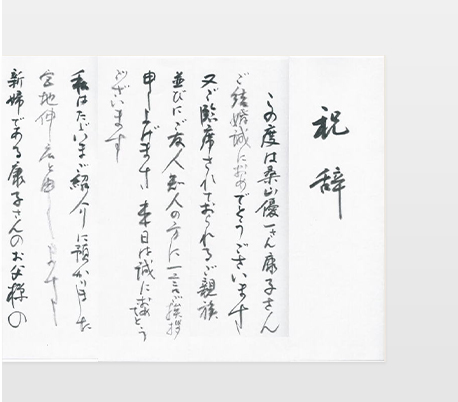 祝辞
この度は桑山優一さん康子さん
ご結婚誠におめでとうございます
又ご臨席されておられるご親族
並びにご友人知人の方に一言ご挨拶
申し上げます 本日は誠におめでとう
ございます
私はただいまご紹介に預かりました
宮地伸一と申します
新婦である康子さんのお父様の